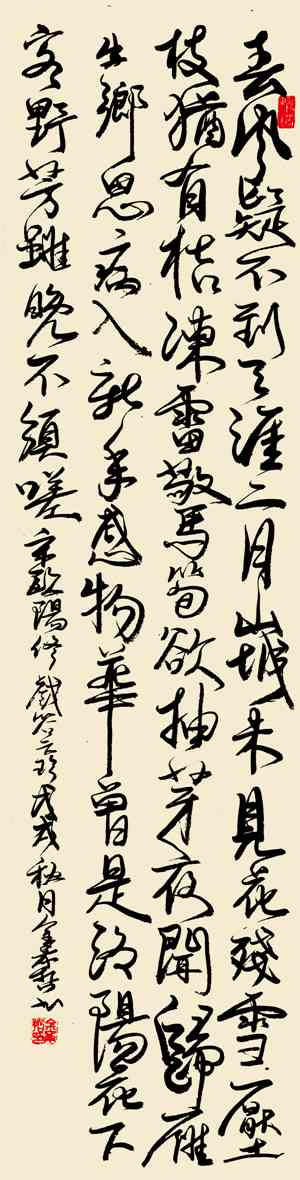 春風疑不到天涯二月山城未見花殘雪壓
枝猶有桔凍雷驚筍欲抽芽夜聞歸雁
生鄉思病入新年感物華曾是洛陽花下
客野芳雖晚不須嗟宋歐陽修戲答元珍戊戌秋月金